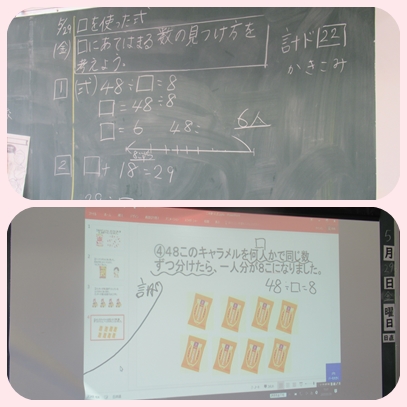 5/29 □を使った式
(金) □にあてはまる数の見つけ方を
考えよう。
計ド22
かきこみ
1 (式) 48÷□=8
□=48÷8
□=6 48÷
6人
2 □+18=29
□
④48このキャラメルを何人かで同じ数
ずつ分けたら、一人分が8こになりました。
48÷□=8
5月29日金曜日